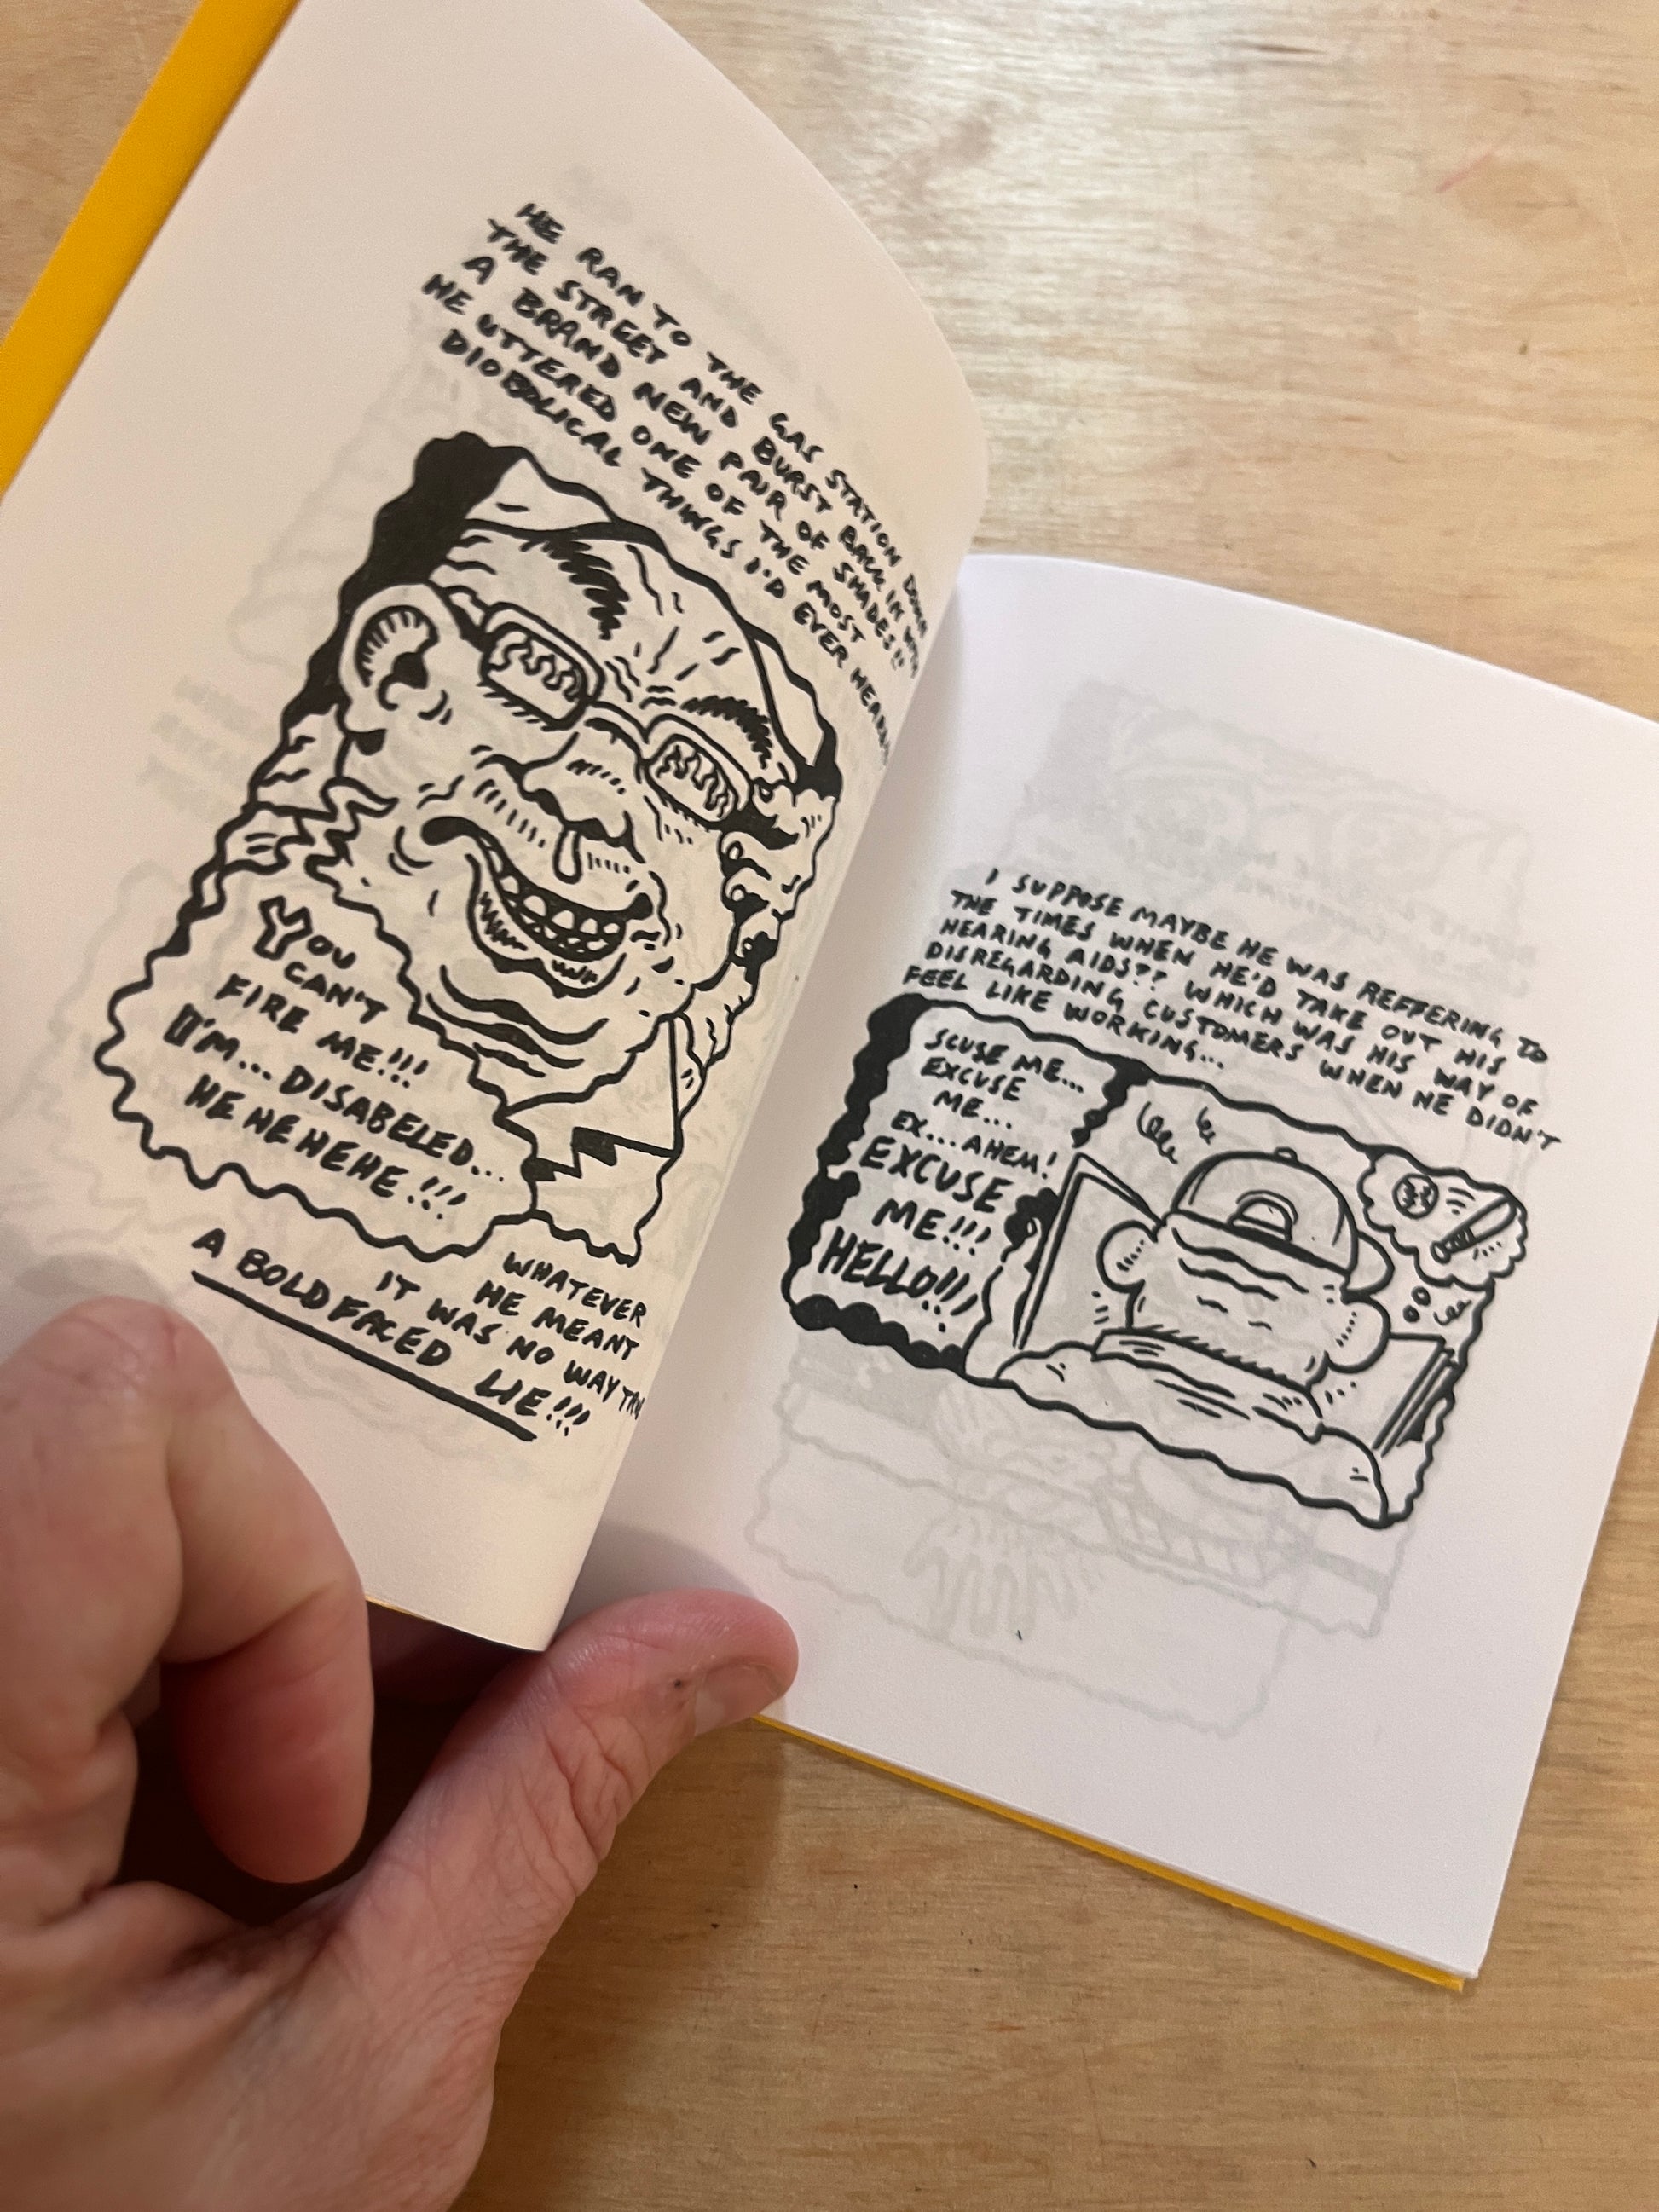 HE RAN TO THE GAS STATION DOWN
THE STREET AND BURST BACK IN WITH
A BRAND NEW PAIR OF SHADES!!
HE UTTERED ONE OF THE MOST
DIOBOLICAL THINGS I'D EVER HEARD
YOU
CAN'T
FIRE ME!!!
I'M... DISABELED...
HE HE HEHE!!!
WHATEVER
HE MEANT
IT WAS NO WAY
A BOLD FACED LIE!!!
I SUPPOSE MAYBE HE WAS REFFERING TO
THE TIMES WHEN HE'D TAKE OUT HIS
HEARING AIDS?? WHICH WAS HIS WAY OF
DISREGARDING CUSTOMERS WHEN HE DIDN'T
FEEL LIKE WORKING...
SCUSE ME...
EXCUSE
ME...
EX... AHEM!
EXCUSE
ME!!!
HELLO!!!